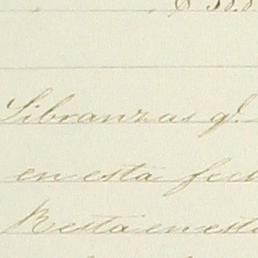 Libranzas q.
en esta fe
Resta en esta